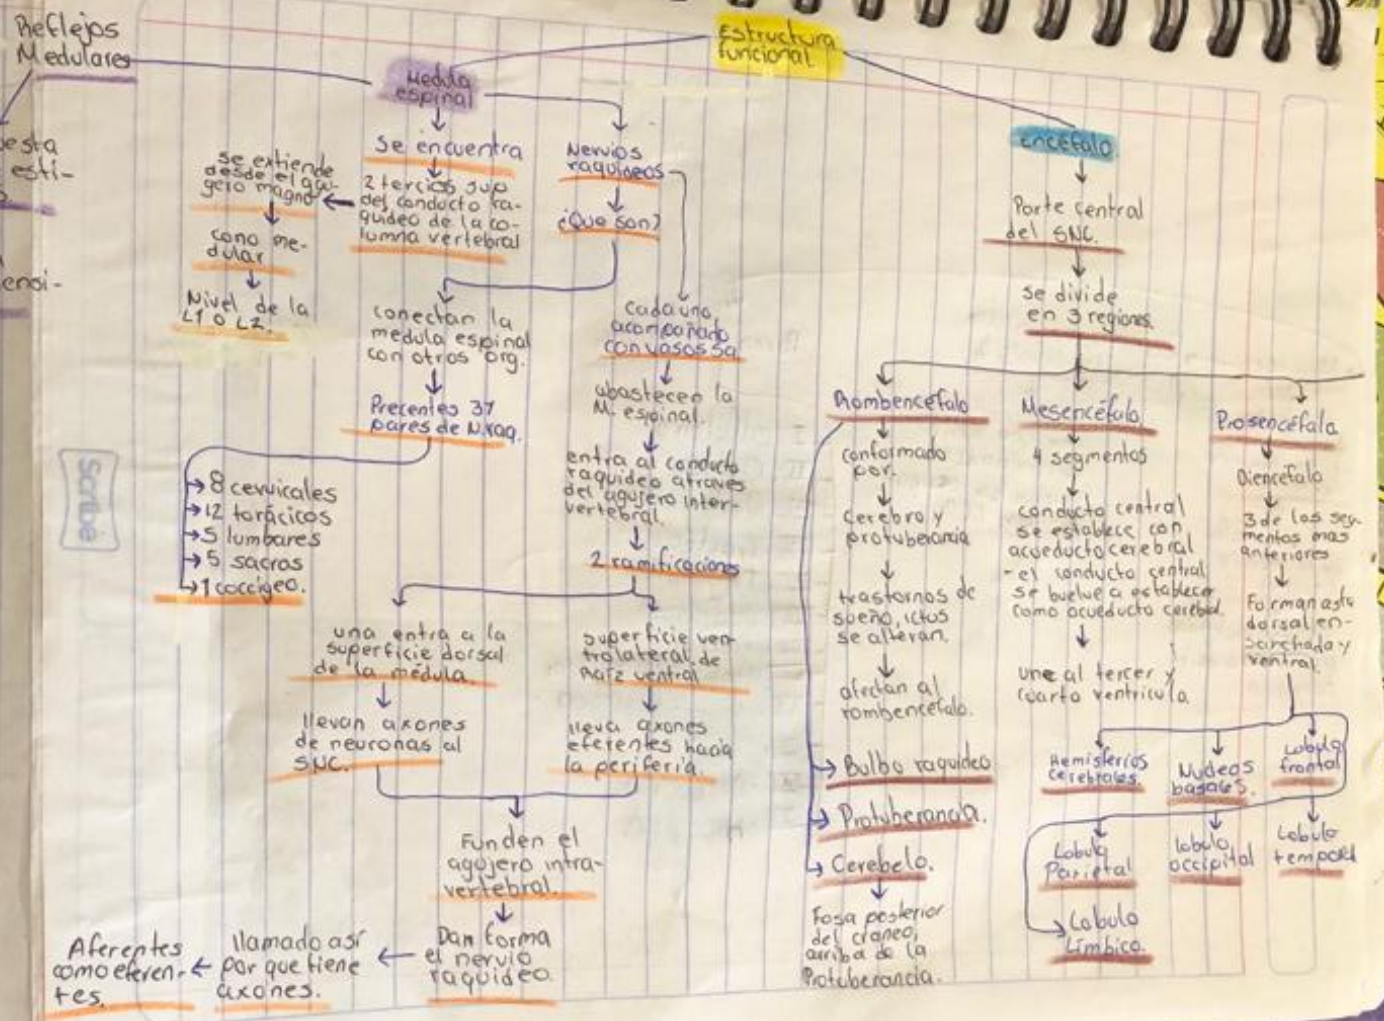 Estructura
funcional.
Reflejos
Medulares
esta
estí-
ensi-
Medula
espinal
Se encuentra
2 tercios sup
del conducto ra-
quideo de la co-
lumna vertebral
se extiende
desde el agu-
gero magno
cono me-
dular
Nivel de la
L1 O L2.
Nervios
raquideos
¿Que son?
conectan la
medula espinal
con otros org.
Precentes 37
pares de N.raq.
8 cervicales
12 torácicos
5 lumbares
5 sacros
1 coccigeo.
Cada uno
acompañado
con vasos sa
abastecen la
M. espinal.
entra al conducto
raquideo atraves
del agujero inter-
vertebral.
2 ramificaciones
una entra a la
superficie dorsal
de la médula.
llevan axones
de neuronas al
SNC.
superficie ven
trolateral de
raíz ventral
lleva axones
eferentes hacia
la periferia.
Funden el
agujero intra-
vertebral.
Dan forma
el nervio
raquideo.
llamado así
por que tiene
axones.
Aferentes
como eferen-
tes.
encéfalo.
Parte central
del SNC.
se divide
en 3 regiones.
Rombencéfalo
conformado
por.
Cerebro y
protuberancia
trastornos de
sueño, ictus
se alteran.
afectan al
rombencefalo.
Bulbo raquideo
Protuberancia.
Cerebelo.
Fosa posterior
del craneo,
arriba de la
Protuberancia.
Mesencéfalo.
4 segmentos
conducto central
se establece con
acueducto cerebral
- el conducto central
se buelve a establecer
como acueducto cerebral.
une al tercer y
cuarto ventriculo.
Prosencéfalo
Diencéfalo
3 de los seg-
mentos mas
anteriores
Forman asta
dorsal en-
sanchada y
ventral.
Hemisferios
cerebrales.
Nucleos
basales.
Lobulo
frontal
Lobulo
Parietal
lobulo
occipital
Lobulo
temporal
Lobulo
Límbico.
Scribe